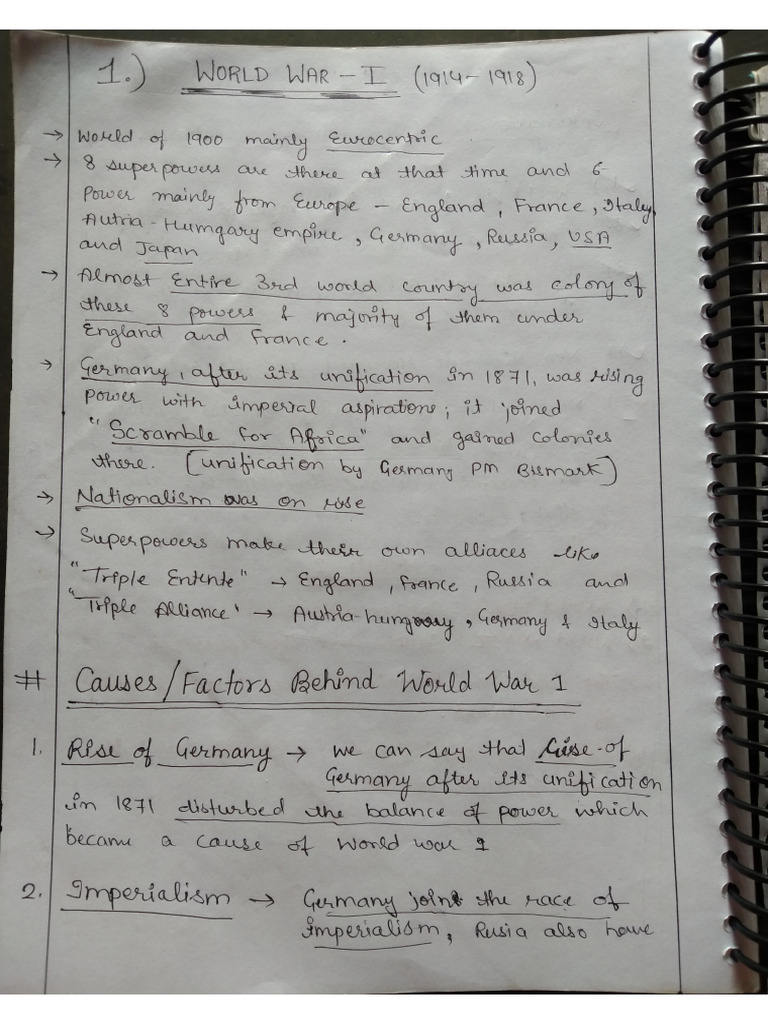 1.) WORLD WAR - I (1914 - 1918)
→ World of 1900 mainly Eurocentric
→ 8 superpowers are there at that time and 6
Power mainly from Europe - England, France, Italy,
Autria-Humgary empire, Germany, Russia, USA
and Japan
→ Almost Entire 3rd world country was colony of
these 8 powers & majority of them under
England and France.
→ Germany, after its unification in 1871, was rising
power with imperial aspirations; it joined
"Scramble for Africa" and gained colonies
there. [unification by Germany PM Bismark]
→ Nationalism was on rise
→ Superpowers make their own alliaces like
"Triple Entente" → England, France, Russia and
"Triple Alliance' → Austria-hungary, Germany & Italy
# Causes/Factors Behind World War 1
1. Rise of Germany → we can say that Rise of
Germany after its unification
in 1871 disturbed the balance of power which
became a cause of World war 1
2. Imperialism → Germany joint the race of
imperialism, Rusia also have